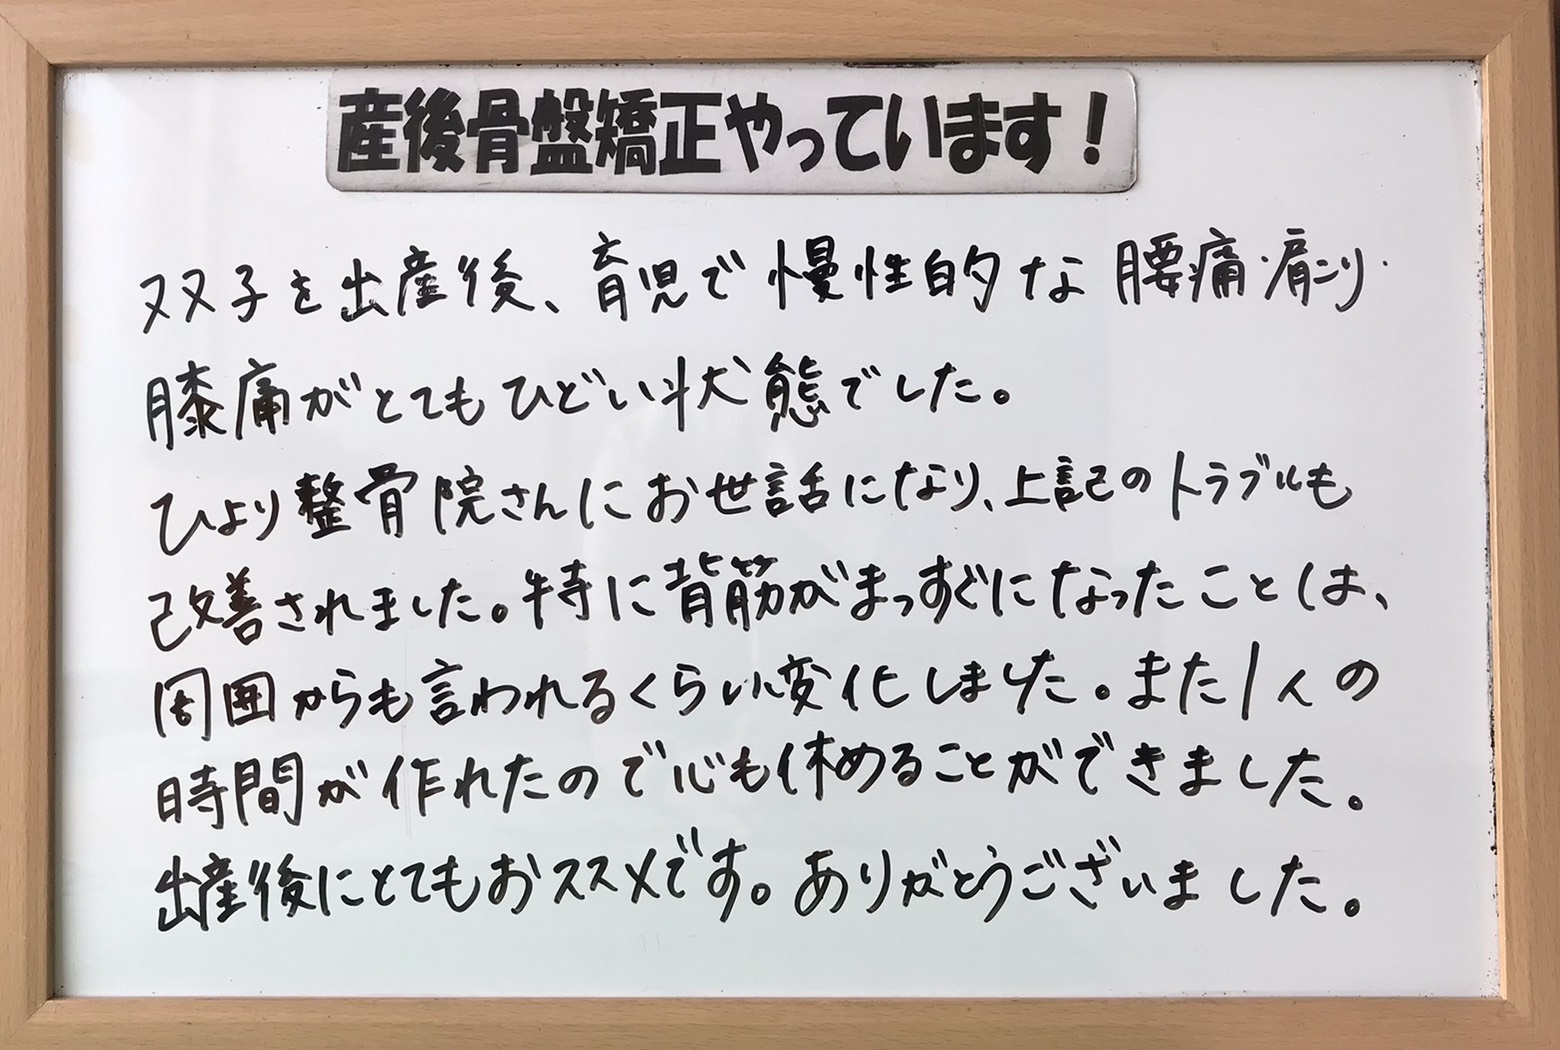 産後骨盤矯正やっています！
双子を出産後、育児で慢性的な腰痛・肩こり・
膝痛がとてもひどい状態でした。
ひより整骨院さんにお世話になり、上記のトラブルも
改善されました。特に背筋がまっすぐになったことは、
周囲からも言われるくらい変化しました。また1人の
時間が作れたので心も休めることができました。
出産後にとてもおススメです。ありがとうございました。